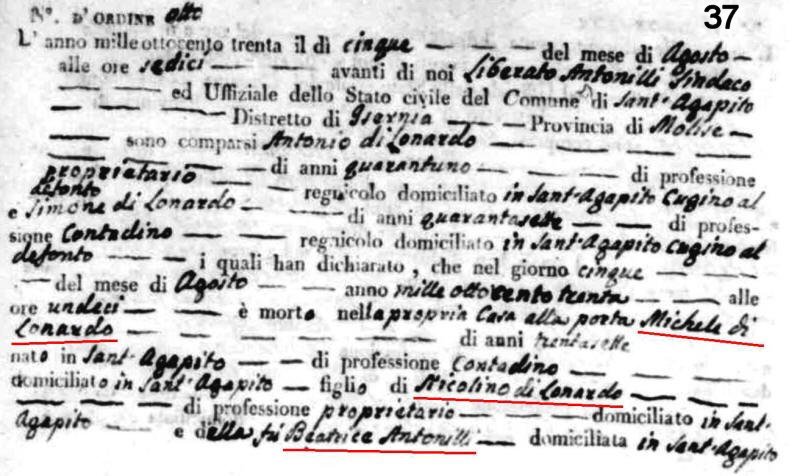 37
N.° D'ORDINE otto
L'anno mille ottocento trenta il dì cinque — — — del mese di Agosto —
alle ore sedici — — — avanti di noi Liberato Antonilli Sindaco
— — — ed Uffiziale dello Stato civile del Comune di Sant'Agapito
— — — Distretto di Isernia — — — Provincia di Molise —
— — — sono comparsi Antonio di Lonardo — — —
proprietario — — — di anni quarantuno — — — di professione
defonto — — — regnicolo domiciliato in Sant'Agapito Cugino al
e Simone di Lonardo — — — di anni quarantasette — — di profes-
sione Contadino — — — regnicolo domiciliato in Sant'Agapito Cugino al
defonto — — — i quali han dichiarato, che nel giorno cinque — — —
— del mese di Agosto — — — anno mille ottocento trenta — — alle
ore undeci — — — è morto nella propria Casa alla porta Michele di
Lonardo — — — — — — di anni trentasette
nato in Sant'Agapito — — — di professione Contadino — — —
domiciliato in Sant'Agapito — figlio di Nicolino di Lonardo — — —
— — — di professione proprietario — — — domiciliato in Sant'
Agapito — — e della fù Beatrice Antonilli — domiciliata in Sant'Agapito